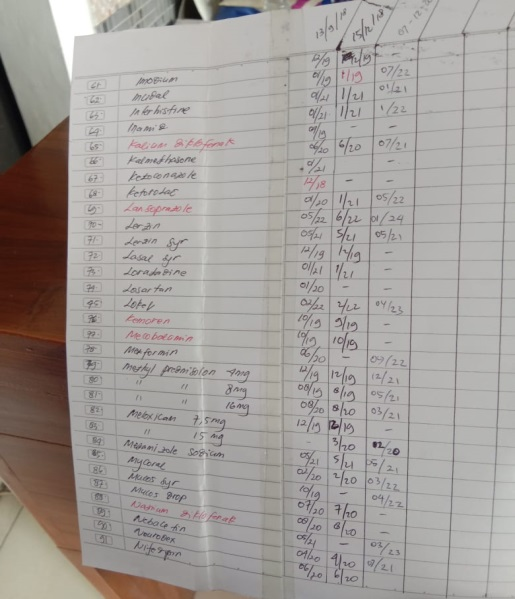 13/9/18 15/12/18
61 Imodium 12/19 12/19 -
62 Incidal 01/19 2/19 07/22
63 Interhistine 01/21 1/21 01/21
64 01/21 1/21 1/22
65 Kalium Diklofenak 09/19 - -
66 Kalmethasone 06/20 6/20 07/21
67 Ketoconazole 01/21 - -
68 Ketorolac 12/18 - -
69 Lansoprazole 01/20 1/21 05/22
70 Lerzin 05/22 6/22 01/24
71 Lerzin Syr 05/21 5/21 05/21
72 Lasal syr 12/19 12/19 -
73 Loratadine 01/21 1/21 -
74 Losartan 01/20 - -
75 02/22 2/22 04/23
76 10/19 9/19 -
77 Mecobalamin 10/19 10/19 -
78 Metformin 06/20 - 09/22
79 Methyl prednisolon 4mg 12/19 12/19 12/21
80 " " 8mg 08/19 8/19 05/21
81 " " 16mg 08/20 8/20 03/21
82 Meloxicam 7,5mg 12/19 12/19 -
83 " 15 mg - 3/20 02/20
84 Metamizole Sodium 05/21 5/21 05/21
85 Myceral 02/20 2/20 03/22
86 Mucos syr 10/19 - 04/22
87 Mucos Drop 07/20 7/20 -
88 Natrium Diklofenak 08/20 8/20 -
89 Nebacetin 05/21 - 02/23
90 Neurobex 04/20 4/20 8/21
91 Nifedipin 06/20 6/20